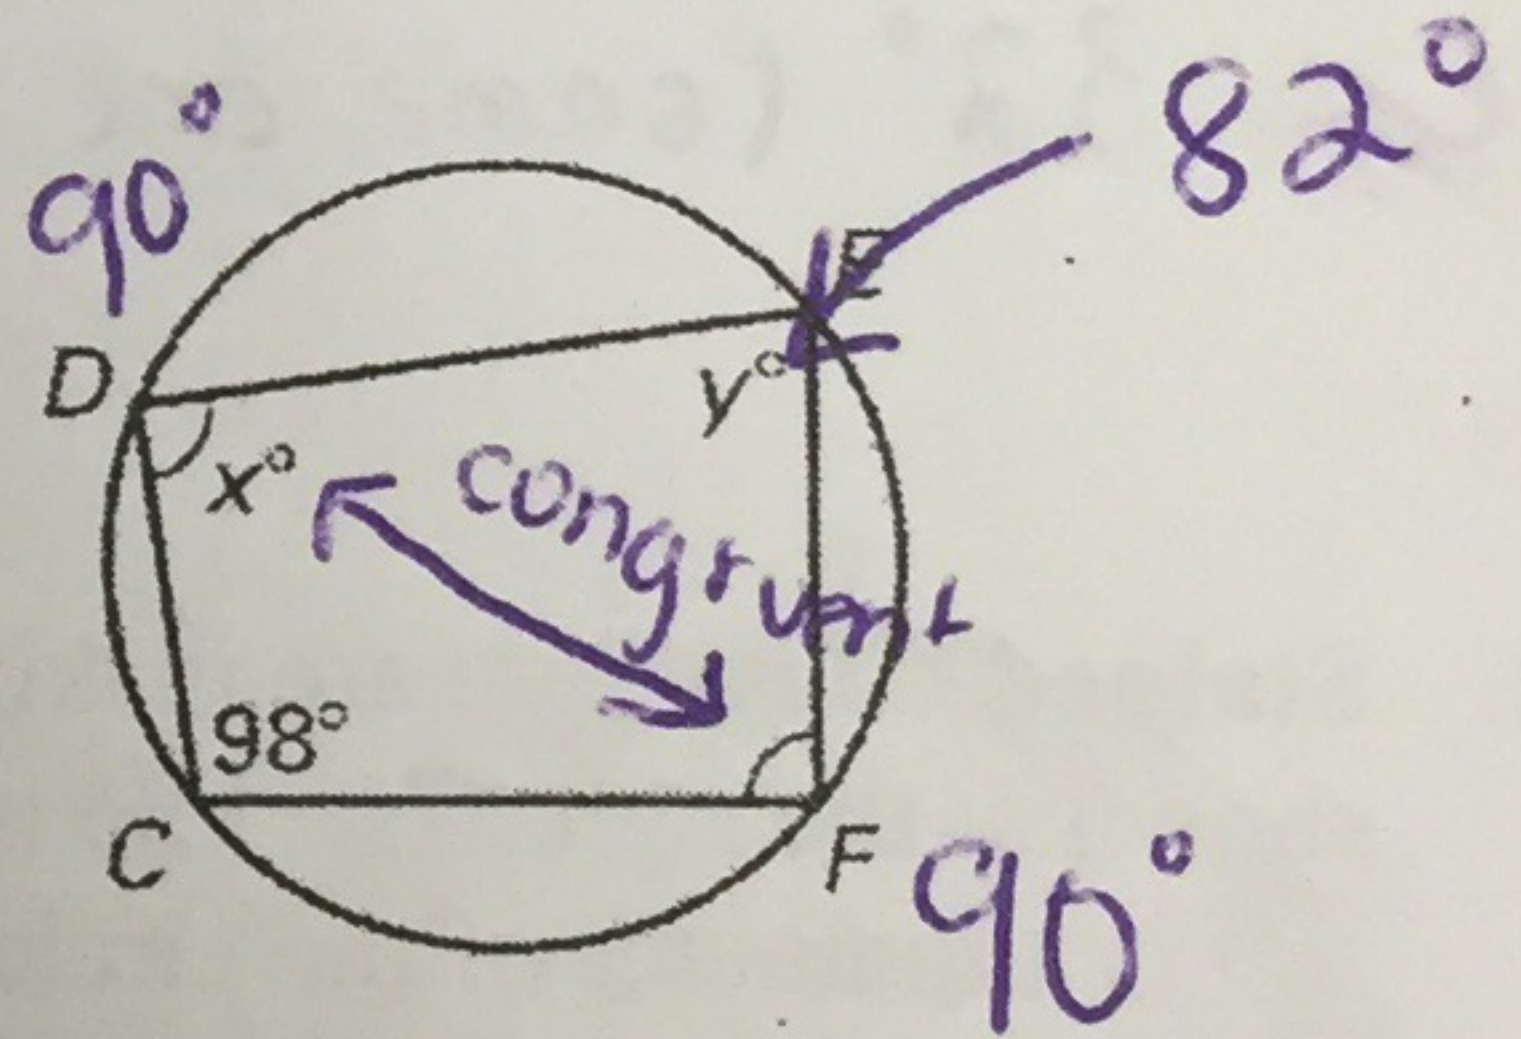 90°
82°
E
D
y°
x°
congruent
98°
C
F
90°